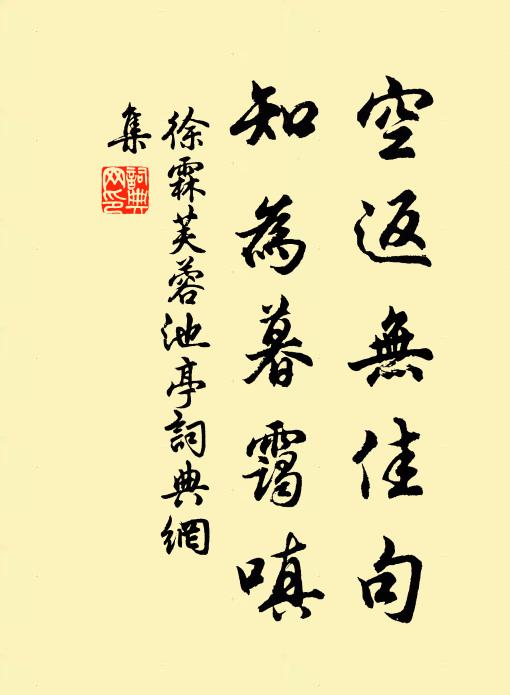 空返無佳句
知為暮靄嗔
徐霖芙蓉池亭詞典網
集
詞典網印